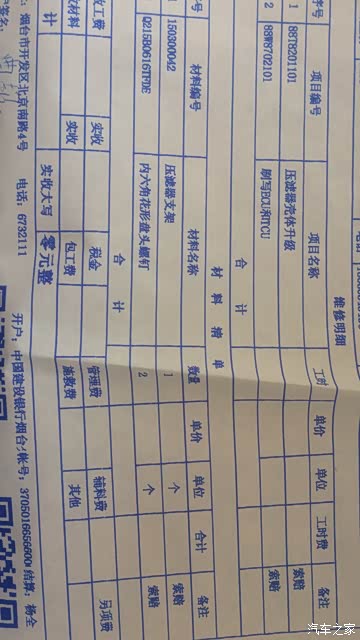 维修明细
序号 项目编号 项目名称 工时 单价 单位 工时费 备注
1 88T8201101 压滤器壳体升级 索赔
2 88W8702101 刷写ECU和TCU 索赔
合 计
材 料 清 单
材料编号 材料名称 数量 单价 单位 合计 备注
1 150300042 压滤器支架 1 个 索赔
Q215B0616TFDE 内六角花形盘头螺钉 2 个 索赔
合 计
工费 实收 税金 管理费 辅料费 另项费
材料 实收 包工费 施救费 其他
计 实收大写 零元整
烟台市开发区北京南路4号 电话: 6732111 开户: 中国建设银行烟台 帐号: 结算: 杨全
汽车之家